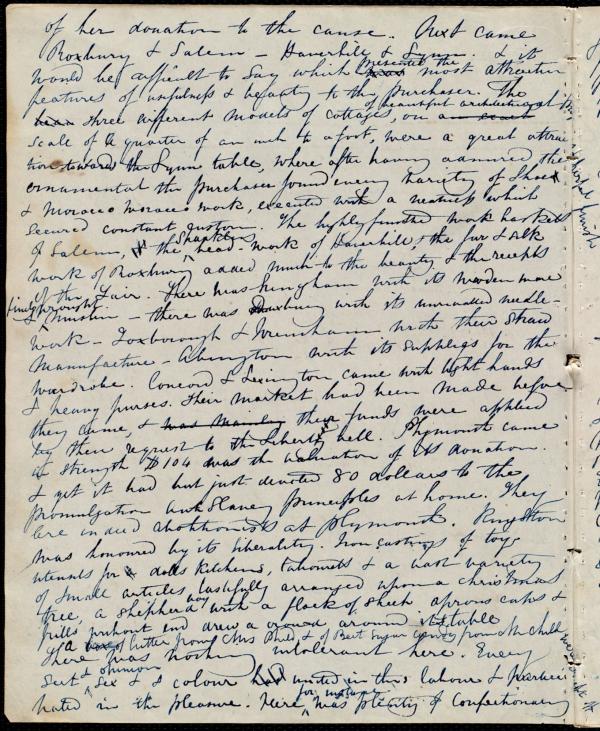 of her donation to the cause. Next came
Roxbury & Salem - Haverhill & Lynn. & it
would be difficult to say which presented the most attractive
features of usefulness & beauty to the purchaser. The
three different models of cottages, of beautiful architecture, on a
scale of a quarter of an inch to a foot, were a great attrac
tion towards the Lynn table, where after having admired the
ornamental the purchaser found every variety of Shoes
& Morocco work, executed with a neatness which
secured constant custom. The highly finished work baskets
of Salem, the bead-work of Haverhill, the fur & silk
work of Roxbury added much to the beauty & the receipts
of the Fair. There was Hingham with its wooden ware
& finely wrought muslin - there was with its unrivalled needle-
work - Foxborough & Wrentham with their straw
manufacture - Abington with its supplies for the
wardrobe. Concord & Lexington came with light hands
& heavy purses. Their market had been made before
they came, & was mainly their funds were applied
by their request to the Liberty bell. Plymouth came
in strength $104 was the valuation of its donation.
& yet it had but just devoted 80 dollars to the
promulgation Anti Slavery principles at home. They
are indeed abolitionists at Plymouth. Kingston
was honoured by its liberality. Iron castings of toys
utensils for dolls kitchens, tabourets & a vast variety
of small articles tastefully arranged upon a Christmas
tree, a shepherd boy with a flock of sheep, aprons caps &
frills without end drew a crowd around its table
of butter from Mrs & of Beet Sugar candy from Mr Child
There was nothing intolerant here. Every
Sect & opinion Sex & colour had united in this labour & partici
pated in the pleasure. Here, for instance, was plenty of Confectionary